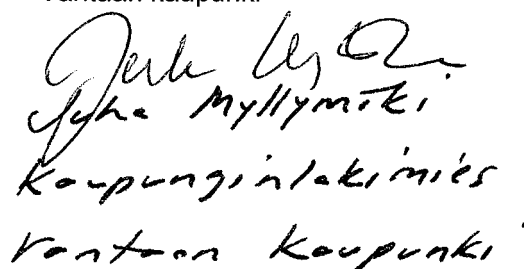 Vantaan kaupunki
Juha Myllymäki
Kaupunginlakimies
Vantaan Kaupunki